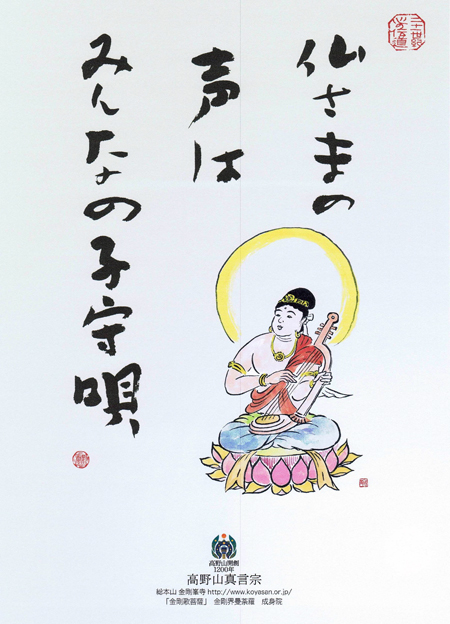 仏さまの
声は
みんなの子守唄
高野山開創
1200年
高野山真言宗
総本山 金剛峯寺 http://www.koyasan.or.jp/
「金剛歌菩薩」 金剛界曼荼羅 成身院